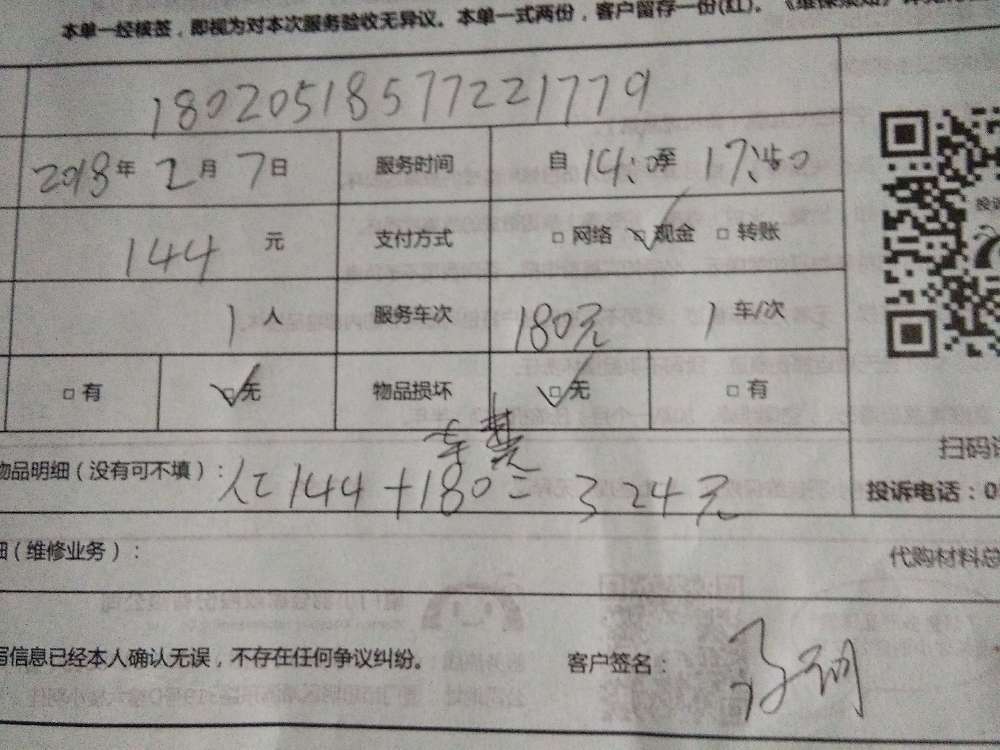 本单一经核签，即视为对本次服务验收无异议。本单一式两份，客户留存一份(红)。
18020518577221779
2018年 2月 7日 服务时间 自 14:0至 17:50
144 元 支付方式 □ 网络 ☑ 现金 □ 转账
1 人 服务车次 180元 1 车/次
□ 有 ☑ 无 物品损坏 ☑ 无 □ 有
车费
物品明细（没有可不填）： 人工144+180=324元
扫码
投诉电话：0
细（维修业务）：
代购材料总
写信息已经本人确认无误，不存在任何争议纠纷。 客户签名：